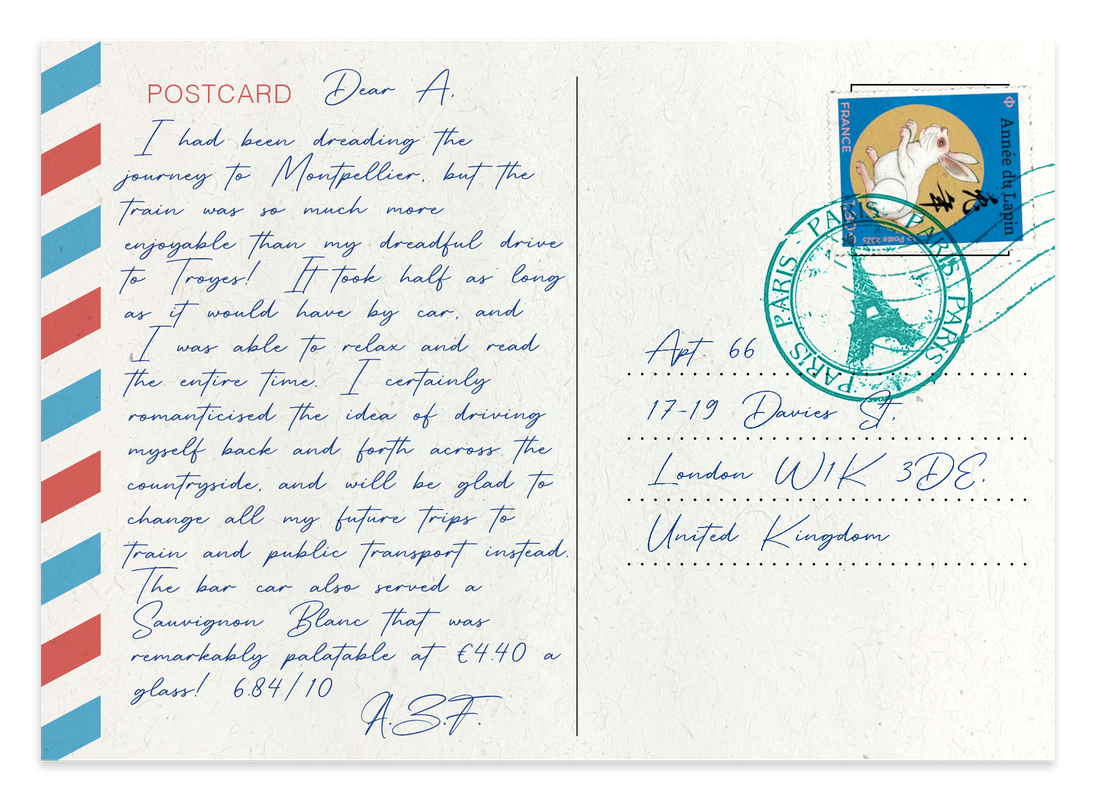 POSTCARD
Dear A.
I had been dreading the
journey to Montpellier, but the
train was so much more
enjoyable than my dreadful drive
to Troyes! It took half as long
as it would have by car, and
I was able to relax and read
the entire time. I certainly
romanticised the idea of driving
myself back and forth across the
countryside, and will be glad to
change all my future trips to
train and public transport instead.
The bar car also served a
Sauvignon Blanc that was
remarkably palatable at €4.40 a
glass! 6.84/10
A.Z.F.
FRANCE
Année du Lapin
兔年
Poste 2023
PARIS - PARIS - PARIS - PARIS - PARIS
Apt. 66
17-19 Davies St.
London W1K 3DE.
United Kingdom